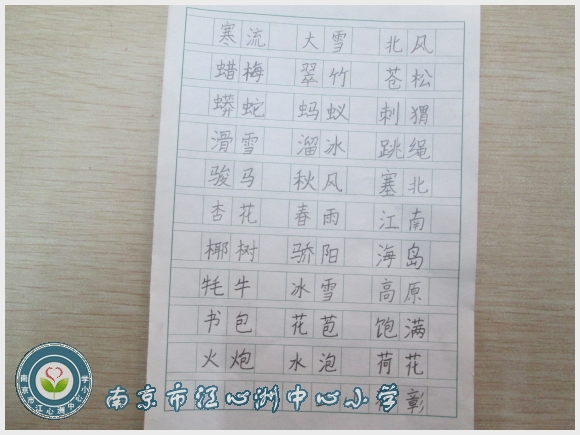 寒流 大雪 北风
蜡梅 翠竹 苍松
蟒蛇 蚂蚁 刺猬
滑雪 溜冰 跳绳
骏马 秋风 塞北
杏花 春雨 江南
椰树 骄阳 海岛
牦牛 冰雪 高原
书包 花苞 饱满
火炮 水泡 荷花
彰
南京市江心洲中心小学
南京市江心洲中心小学